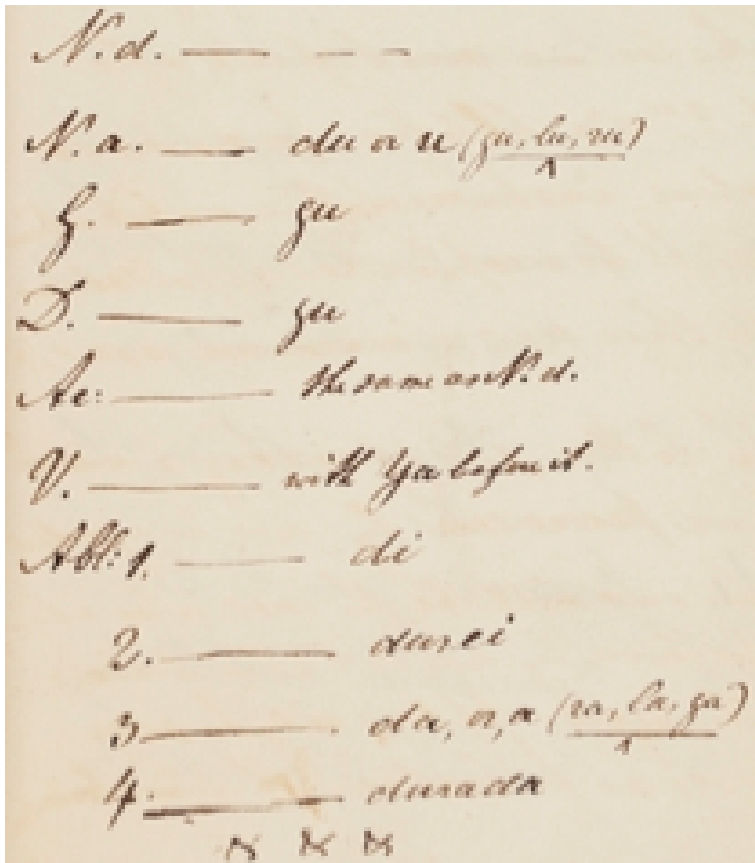 N. d. —— — —
N. a. —— du or u (gu, lu, ru)
G. —— gu
D. —— gu
Ac: —— the same as N. d.
V. —— with Ya before it.
Abl: 1. —— di
2. —— durei
3 —— da, or, a (ra, la, ga)
4. —— durada